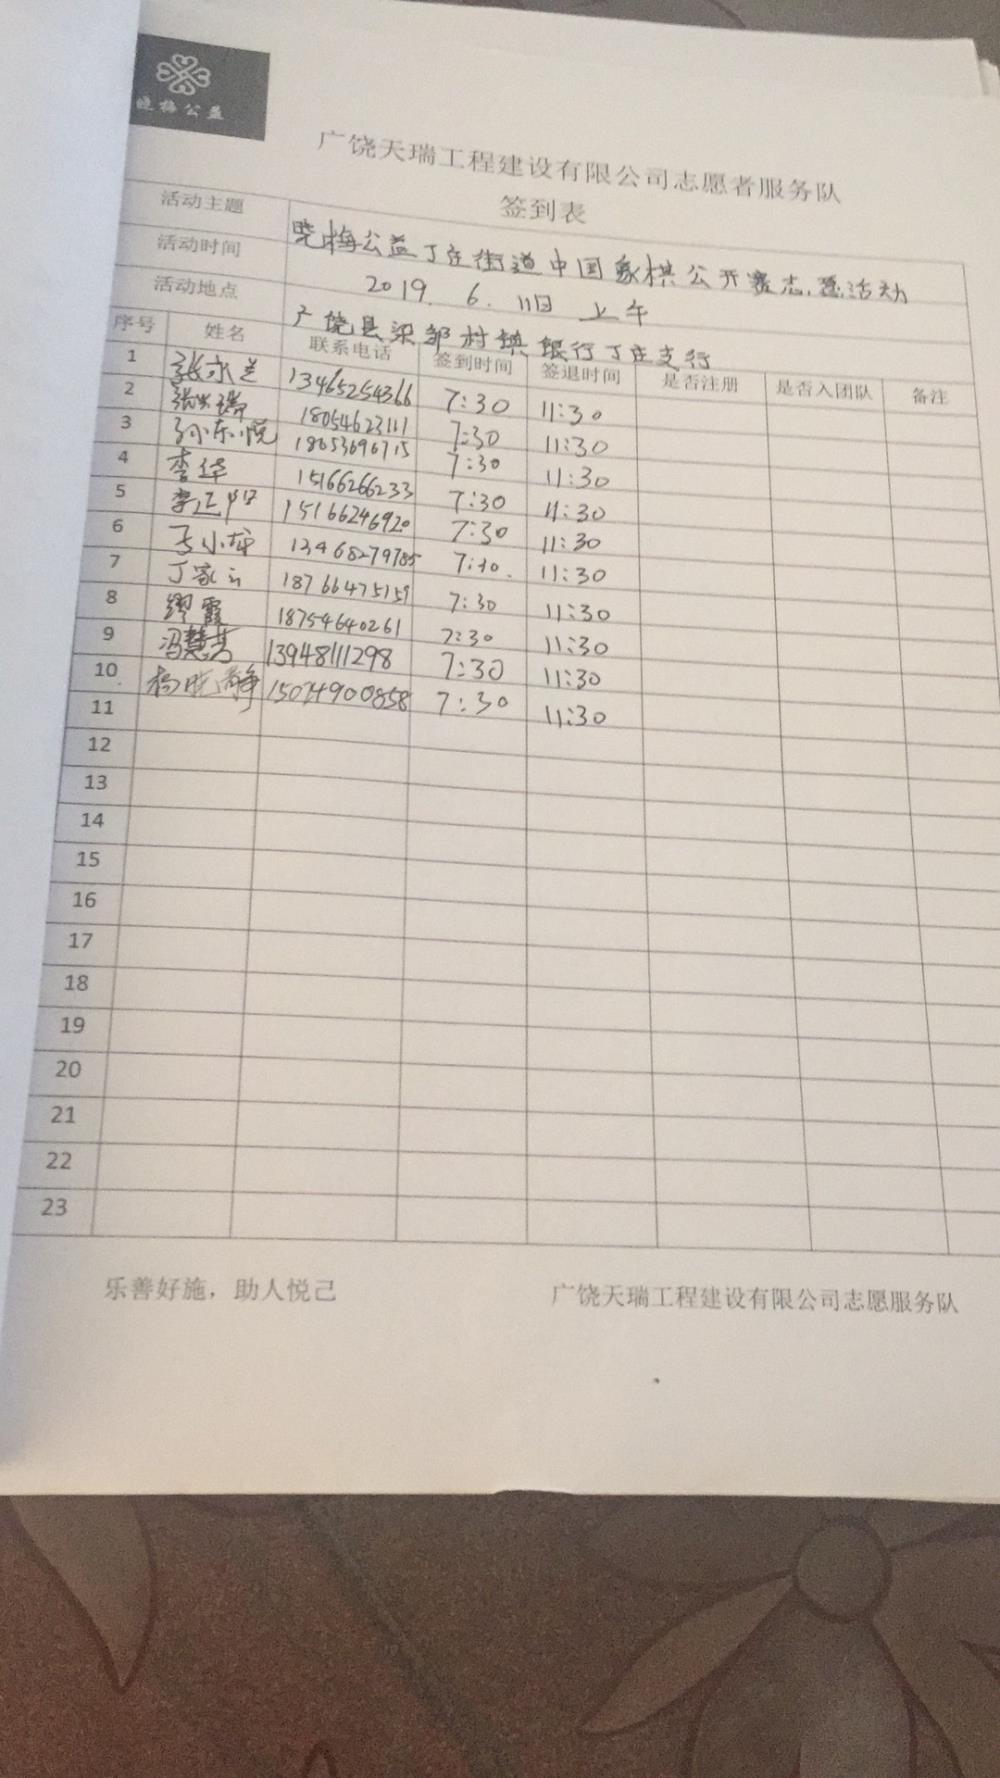 晓梅公益
广饶天瑞工程建设有限公司志愿者服务队
签到表
活动主题 晓梅公益丁庄街道中国象棋公开赛志愿活动
活动时间 2019. 6. 11日 上午
活动地点 广饶县梁邹村镇银行丁庄支行
序号 姓名 联系电话 签到时间 签退时间 是否注册 是否入团队 备注
1 张永兰 13465254366 7:30 11:30
2 18054623111 7:30 11:30
3 孙东悦 18053696715 7:30 11:30
4 李华 15166266233 7:30 11:30
5 15166246920 7:30 11:30
6 13468279785 7:30 11:30
7 丁家云 18766475159 7:30 11:30
8 缪霞 18754640261 7:30 11:30
9 冯慧芳 13948111298 7:30 11:30
10 杨晓静 15074900858 7:30 11:30
11
12
13
14
15
16
17
18
19
20
21
22
23
乐善好施，助人悦己 广饶天瑞工程建设有限公司志愿服务队